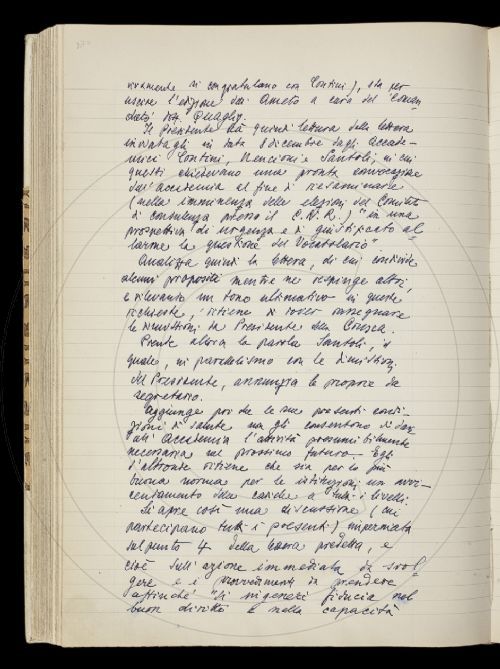 vivamente si congratulano con Contini), sta per
uscire l'edizione dell'Ameto a cura del
dott. Quaglio.
Il Presidente dà quindi lettura della lettera
inviatagli in data 8 dicembre dagli Accade-
mici Contini, Nencioni e Santoli, in cui
questi chiedevano una pronta convocazione
dell'Accademia al fine di riesaminare
(nella imminenza delle elezioni del Comitato
di consulenza presso il C.N.R.) "in una
prospettiva di urgenza e di giustificato al-
larme la questione del Vocabolario"
Analizza quindi la lettera, di cui condivide
alcuni propositi mentre ne respinge altri,
e rilevando un tono ultimativo in queste
richieste, ritiene di dover rassegnare
le dimissioni da Presidente della Crusca.
Prende allora la parola Santoli, il
quale, in parallelismo con le dimissioni
del Presidente, annunzia le proprie da
segretario.
Aggiunge poi che le sue presenti condi-
zioni di salute non gli consentono di dare
all'Accademia l'attività presumibilmente
necessaria nel prossimo futuro. Egli
d'altronde ritiene che sia per lo più
buona norma per le istituzioni un avvi-
cendamento delle cariche a tutti i livelli.
Si apre così una discussione (cui
partecipano tutti i presenti) imperniata
sul punto 4 della lettera predetta, e
cioè sull'azione immediata da svol-
gere e i provvedimenti da prendere
affinché "si ingeneri fiducia nel
buon diritto e nella capacità